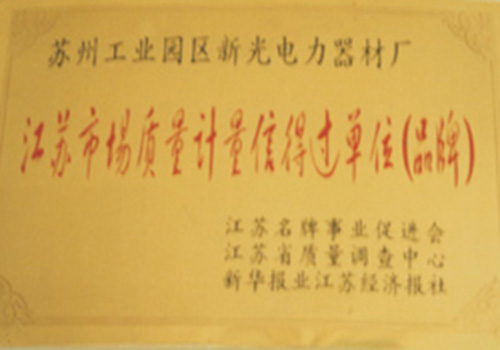 苏州工业园区新光电力器材厂
江苏市场质量计量信得过单位(品牌)
江苏名牌事业促进会
江苏省质量调查中心
新华报业江苏经济报社